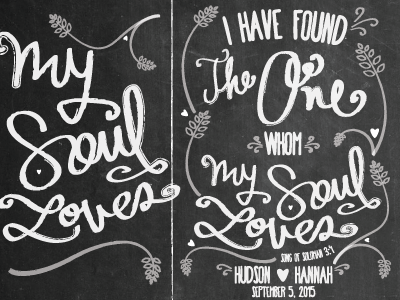 My
Soul
Loves
I HAVE FOUND
The One
WHOM
My Soul
Loves
SONG OF SOLOMON 3:4
HUDSON HANNAH
SEPTEMBER 5, 2015